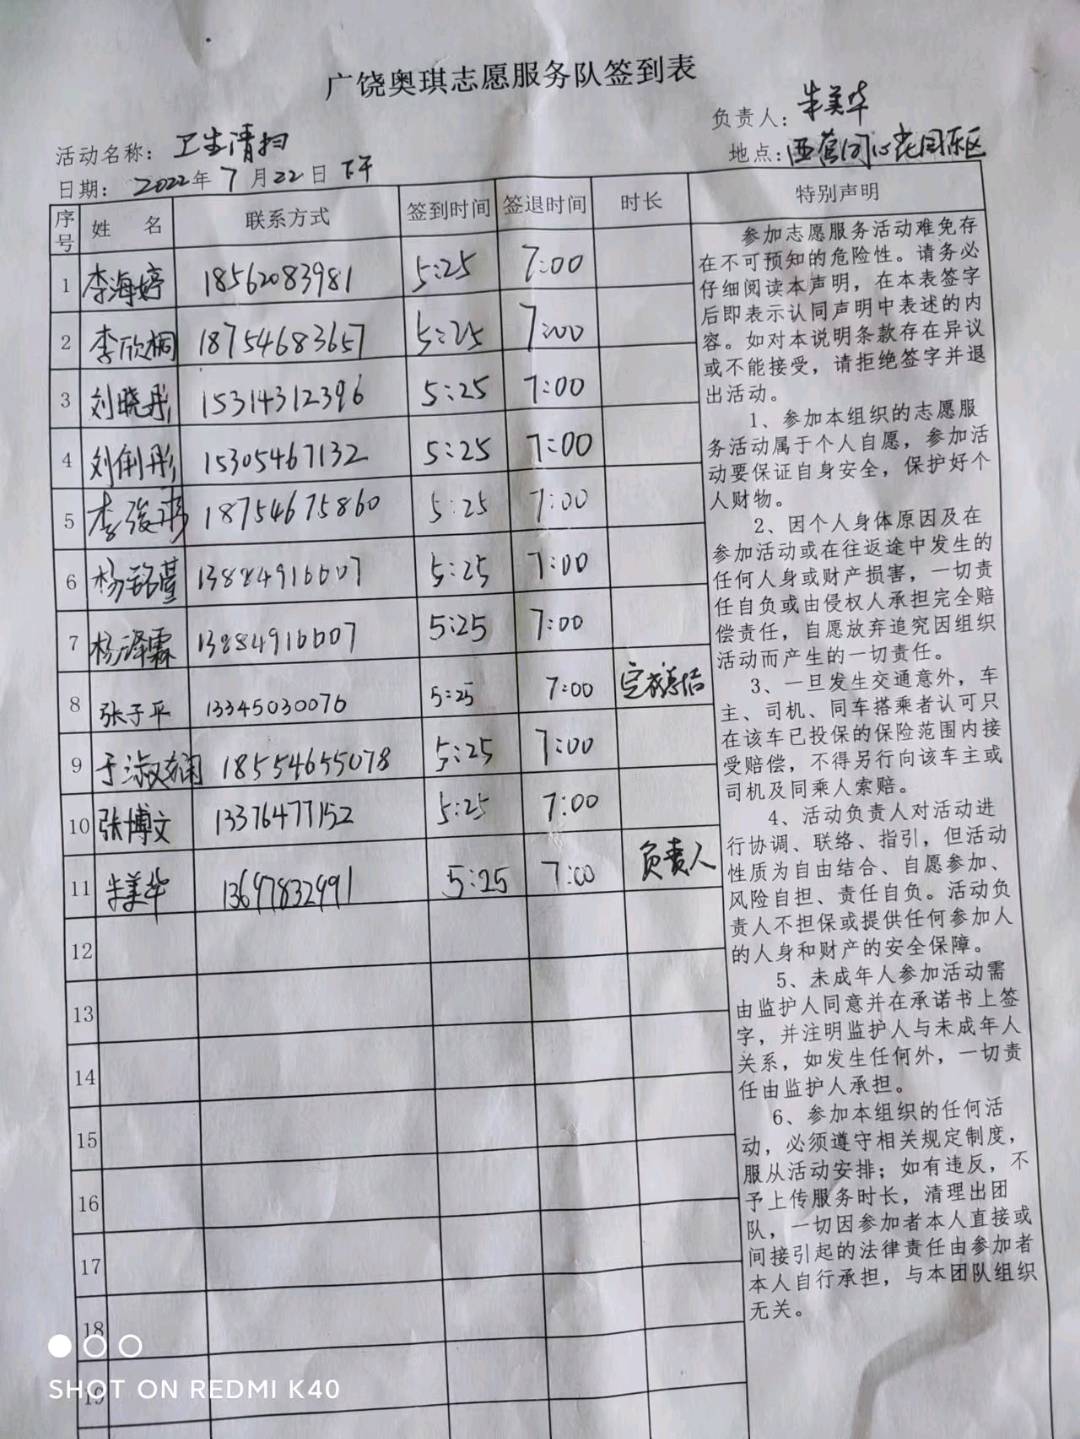 广饶奥琪志愿服务队签到表
负责人：朱美华
活动名称：卫生清扫
地点：西营 花园东区
日期：2022年7月22日下午
序号 姓 名 联系方式 签到时间 签退时间 时长 特别声明
1 李海婷 18562083981 5:25 7:00
2 李欣桐 18754683657 5:25 7:00
3 刘晓彤 15314312396 5:25 7:00
4 刘俐彤 15305467132 5:25 7:00
5 李俊 18754675860 5:25 7:00
6 杨铭萱 13884916007 5:25 7:00
7 杨泽霖 13884916007 5:25 7:00
8 张子平 13345030076 5:25 7:00
9 于淑娴 18554655078 5:25 7:00
10 张博文 13376477152 5:25 7:00
11 朱美华 13697832991 5:25 7:00 负责人
12
13
14
15
16
17
18
19
参加志愿服务活动难免存
在不可预知的危险性。请务必
仔细阅读本声明，在本表签字
后即表示认同声明中表述的内
容。如对本说明条款存在异议
或不能接受，请拒绝签字并退
出活动。
1、参加本组织的志愿服
务活动属于个人自愿，参加活
动要保证自身安全，保护好个
人财物。
2、因个人身体原因及在
参加活动或在往返途中发生的
任何人身或财产损害，一切责
任自负或由侵权人承担完全赔
偿责任，自愿放弃追究因组织
活动而产生的一切责任。
3、一旦发生交通意外，车
主、司机、同车搭乘者认可只
在该车已投保的保险范围内接
受赔偿，不得另行向该车主或
司机及同乘人索赔。
4、活动负责人对活动进
行协调、联络、指引，但活动
性质为自由结合、自愿参加、
风险自担、责任自负。活动负
责人不担保或提供任何参加人
的人身和财产的安全保障。
5、未成年人参加活动需
由监护人同意并在承诺书上签
字，并注明监护人与未成年人
关系，如发生任何外，一切责
任由监护人承担。
6、参加本组织的任何活
动，必须遵守相关规定制度，
服从活动安排；如有违反，不
予上传服务时长，清理出团
队，一切因参加者本人直接或
间接引起的法律责任由参加者
本人自行承担，与本团队组织
无关。
SHOT ON REDMI K40